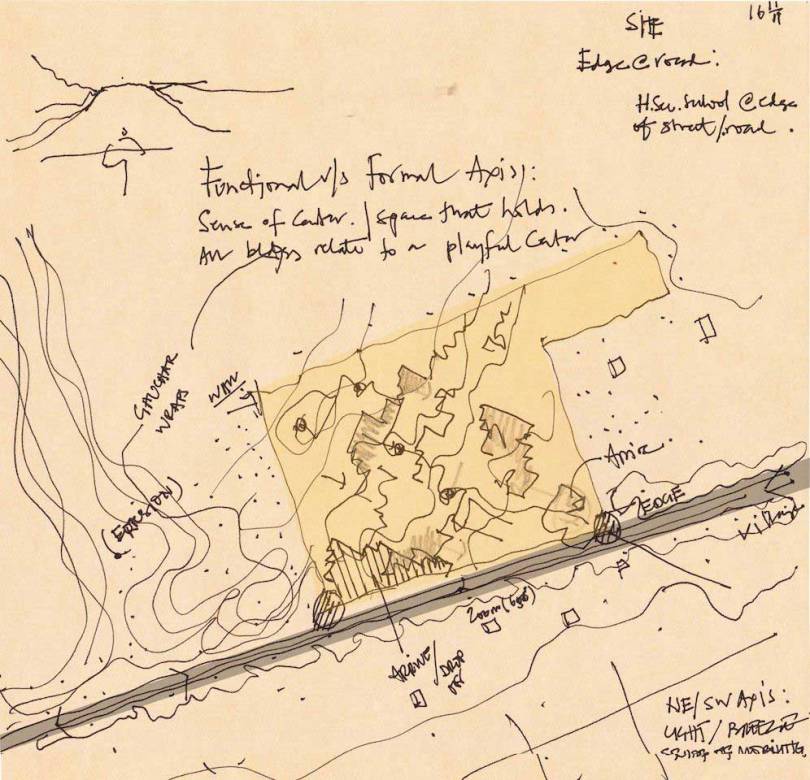 16 11/19
SITE
Edge@road:
H.Sec.School @edge
of street/road.
Functional v/s Formal Axis:
Sense of Center. / space that holds.
All bldgs relate to a playful Center
N
GAUCHAR
WRAPS
(EROSION)
Arrive
EDGE
Village
200m (656)
ARRIVE / DROP
OFF
NE/SW AXIS:
LIGHT / BREEZE